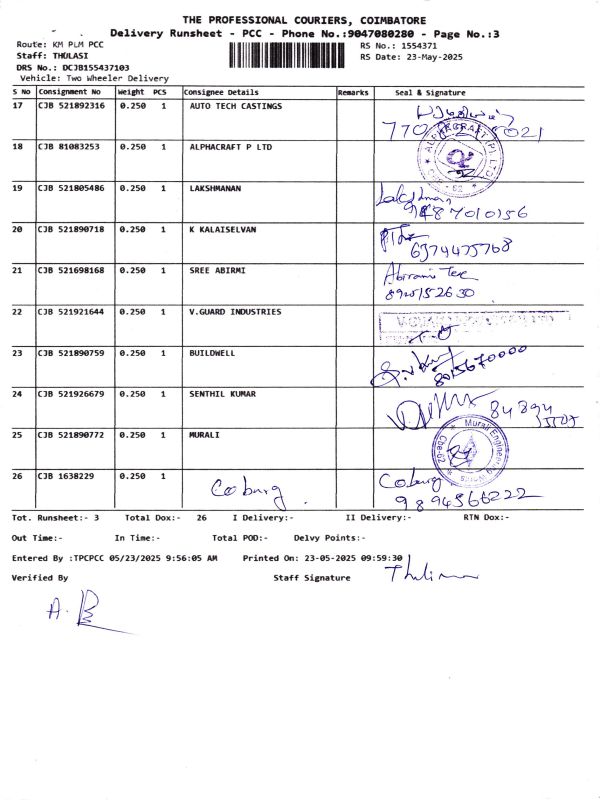 THE PROFESSIONAL COURIERS, COIMBATORE
Delivery Runsheet - PCC - Phone No.:9047080280 - Page No.:3
Route: KM PLM PCC
RS No.: 1554371
Staff: THULASI
RS Date: 23-May-2025
DRS No.: DCJB155437103
Vehicle: Two Wheeler Delivery
S No Consignment No Weight PCS Consignee Details Remarks Seal & Signature
17 CJB 521892316 0.250 1 AUTO TECH CASTINGS
18 CJB 81083253 0.250 1 ALPHACRAFT P LTD
ALPHACRAFT (P) LTD
19 CJB 521805486 0.250 1 LAKSHMANAN
20 CJB 521890718 0.250 1 K KALAISELVAN
6374475768
21 CJB 521698168 0.250 1 SREE ABIRMI
22 CJB 521921644 0.250 1 V.GUARD INDUSTRIES
23 CJB 521890759 0.250 1 BUILDWELL
8015670000
24 CJB 521926679 0.250 1 SENTHIL KUMAR
25 CJB 521890772 0.250 1 MURALI
Murali Engineering Works
Cbe-62
26 CJB 1638229 0.250 1 Coburg Coburg
9894566222
Tot. Runsheet:- 3 Total Dox:- 26 I Delivery:- II Delivery:- RTN Dox:-
Out Time:- In Time:- Total POD:- Delvy Points:-
Entered By :TPCPCC 05/23/2025 9:56:05 AM Printed On: 23-05-2025 09:59:30
Verified By Staff Signature